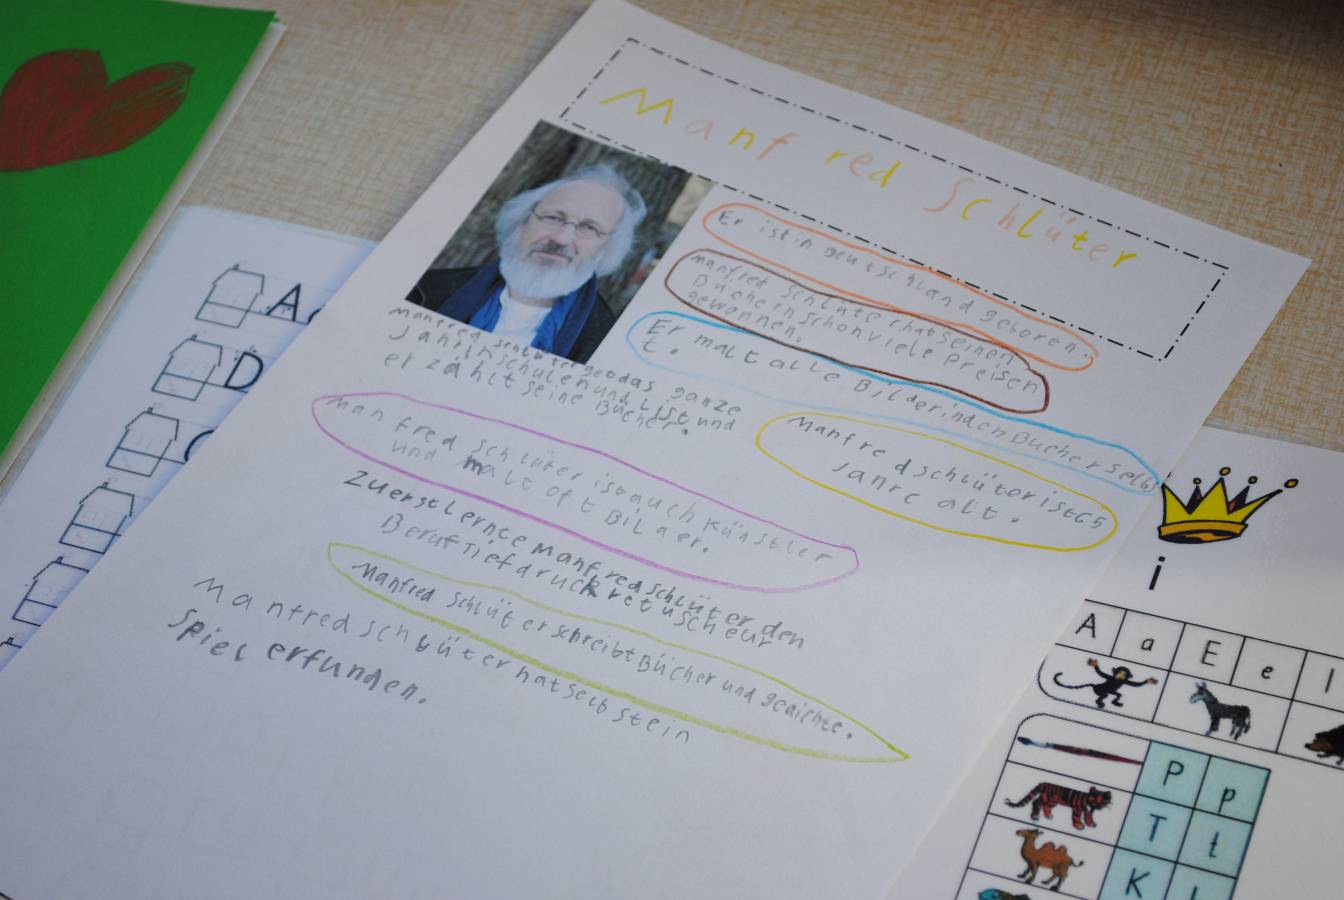 Manfred Schlüter
Er ist in deutschland geboren.
manfred Schlüter hat seinen
Büchern schon viele preisen
gewonnen.
Er malt alle Bilder in den Bücher selbs
t.
manfred schlüter geodas ganze
Jahr in schulen und List und
er zählt seine Bücher.
Manfred schlüter ist 65
Jahre alt.
manfred Schlüter ist auch Künstler
und malt oft Bilder.
Zuerst lernte Manfred schlüter den
Beruf Tiefdruckretuscheur
Manfred Schlüter schreibt Bücher und gedichte.
Manfred schlüter hat selb st ein
Spiel erfunden.
A
D
i
A a E e I
P p
T t
K